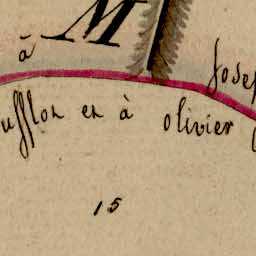 à M
Josep
ufflon en à olivier
15